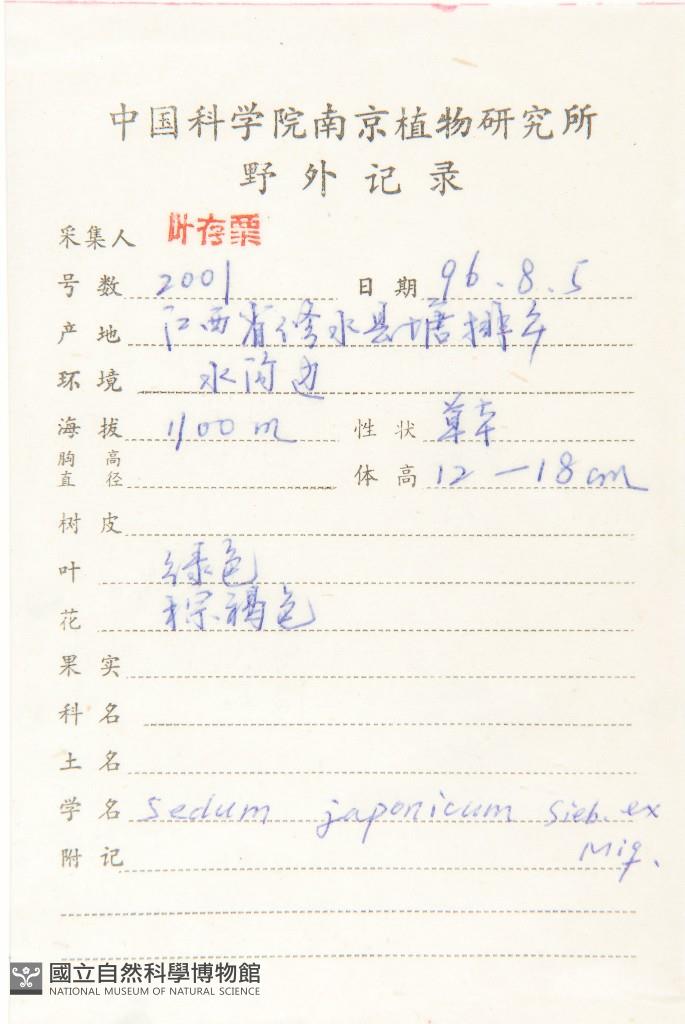 中国科学院南京植物研究所
野外记录
采集人 叶存粟
号数 2001 日期 96.8.5
产地 江西省修水县塘排乡
环境 水沟边
海拔 1100m 性状 草本
胸高直径 体高 12—18cm
树皮
叶 绿色
花 棕褐色
果实
科名
土名
学名 Sedum japonicum Sieb. ex
Miq.
附记
國立自然科學博物館
NATIONAL MUSEUM OF NATURAL SCIENCE